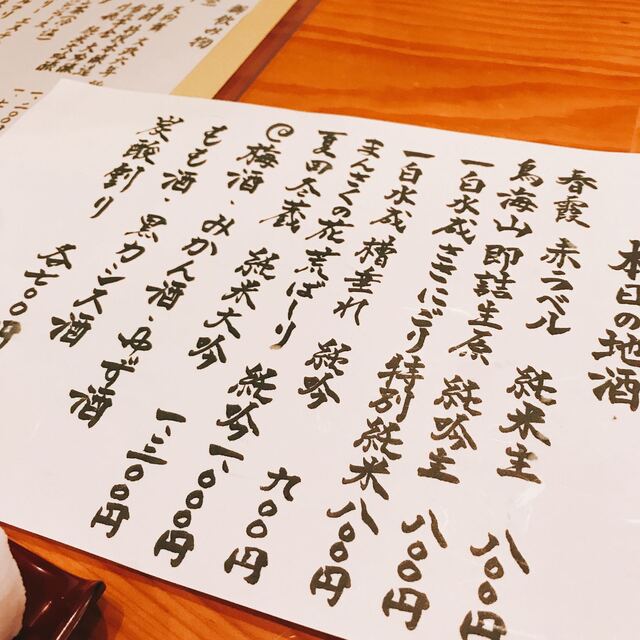 本日の地酒
春霞 赤ラベル 純米生 八〇〇円
鳥海山 即詰生原 純吟生 八〇〇円
一白水成 ささにごり 特別純米 八〇〇円
一白水成 槽垂れ 純吟 九〇〇円
まんさくの花 荒ばしり 純吟 一、〇〇〇円
夏田冬蔵 純米大吟 一、三〇〇円
◎梅酒、みかん酒、ゆず酒
もも酒、黒カシス酒
炭酸割り 各七〇〇円
御飲み物